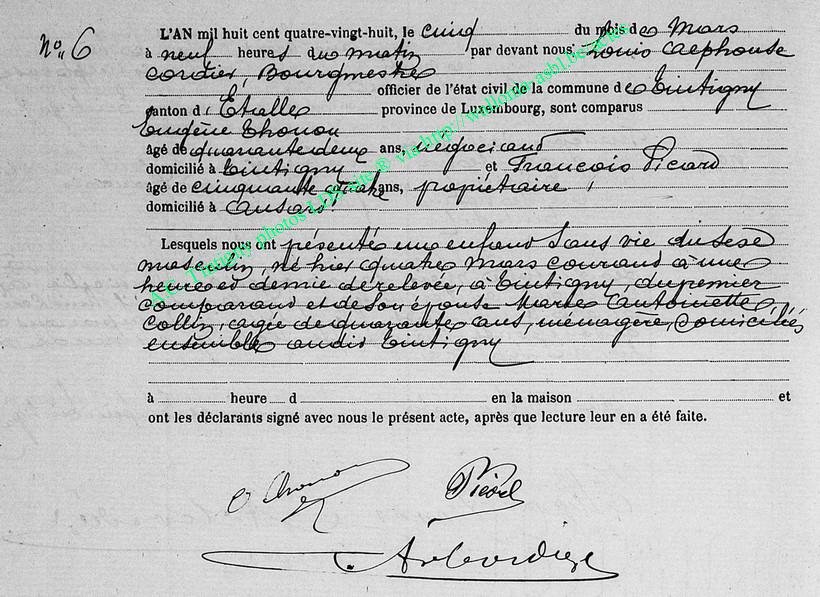 N° 6
L'AN mil huit cent quatre-vingt-huit, le cinq du mois de Mars
à neuf heures du matin par devant nous Louis Alphonse
Cordier, Bourgmestre
officier de l'état civil de la commune de Tintigny
canton d'Etalle province de Luxembourg, sont comparus
Eugène Thonon
âgé de quarante deux ans, négociant
domicilié à Tintigny et François Picard
âgé de cinquante quatre ans, propiétaire,
domicilié à Ansart
Lesquels nous ont présenté un enfant sans vie du sexe
masculin, né hier quatre Mars courant à une
heure et demie de relevée, à Tintigny, du premier
comparant et de son épouse Marie Antoinette
Collin, agée de quarante ans, ménagère, domiciliés
ensemble audit Tintigny
à heure d en la maison et
ont les déclarants signé avec nous le présent acte, après que lecture leur en a été faite.
Thonon Picard
Cordier
Tintigny photos LDH site ® via http://wallonia-asbl.be